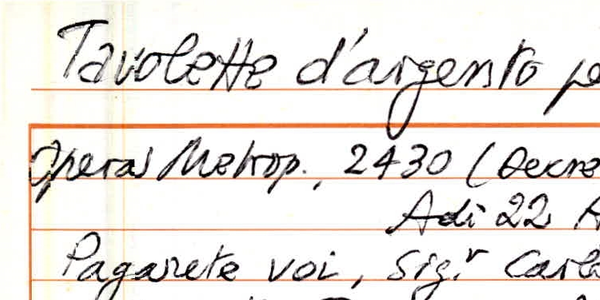 Tavolette d'argento pe
Opera Metrop., 2430 (Decre
Adi 22 A
Pagarete voi, Sig.r Carl